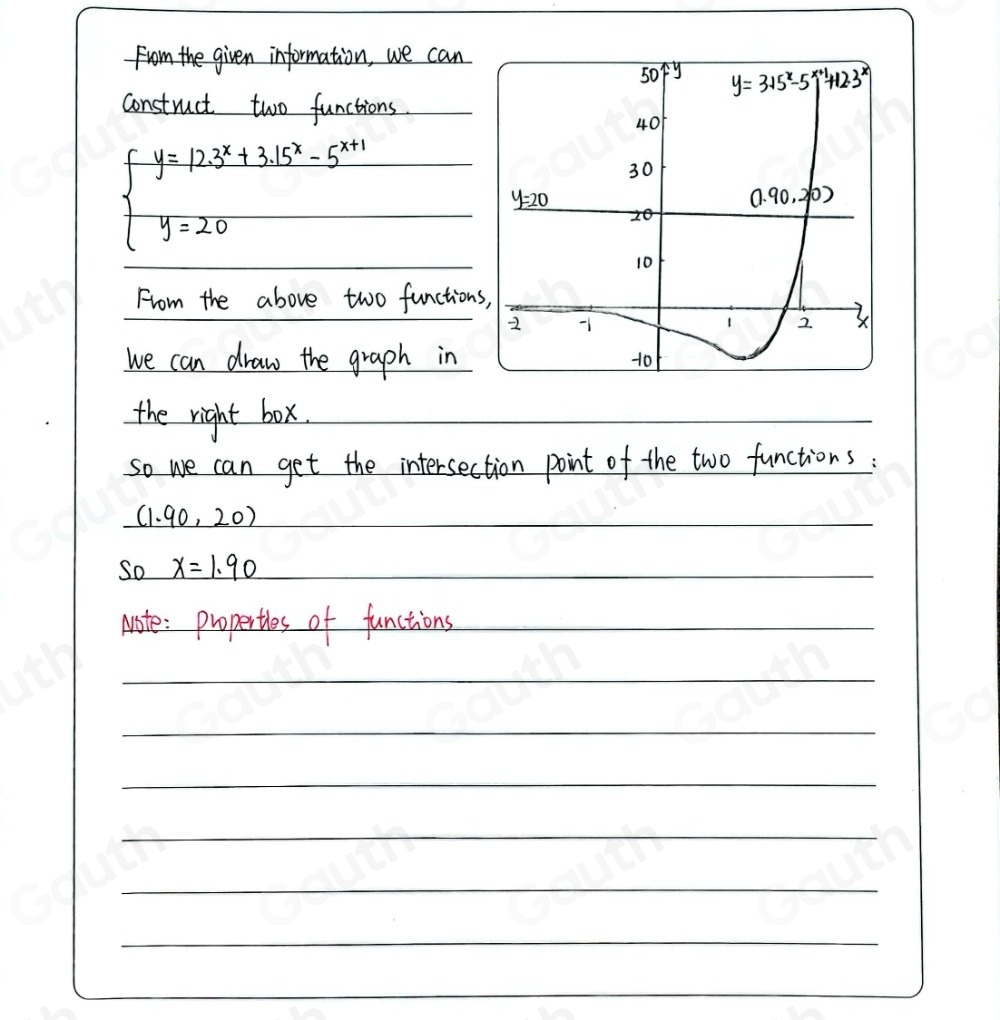 From the given information, we can
construct two functions.
y = 12.3^x + 3.15^x - 5^{x+1}
y = 20
From the above two functions,
we can draw the graph in
the right box.
50 y
y = 3.15^x - 5^{x+1} + 12.3^x
40
30
y=20
20
(1.90, 20)
10
-2 -1 1 2 x
-10
so we can get the intersection point of the two functions:
(1.90, 20)
so x = 1.90
Note: properties of functions
Gauth